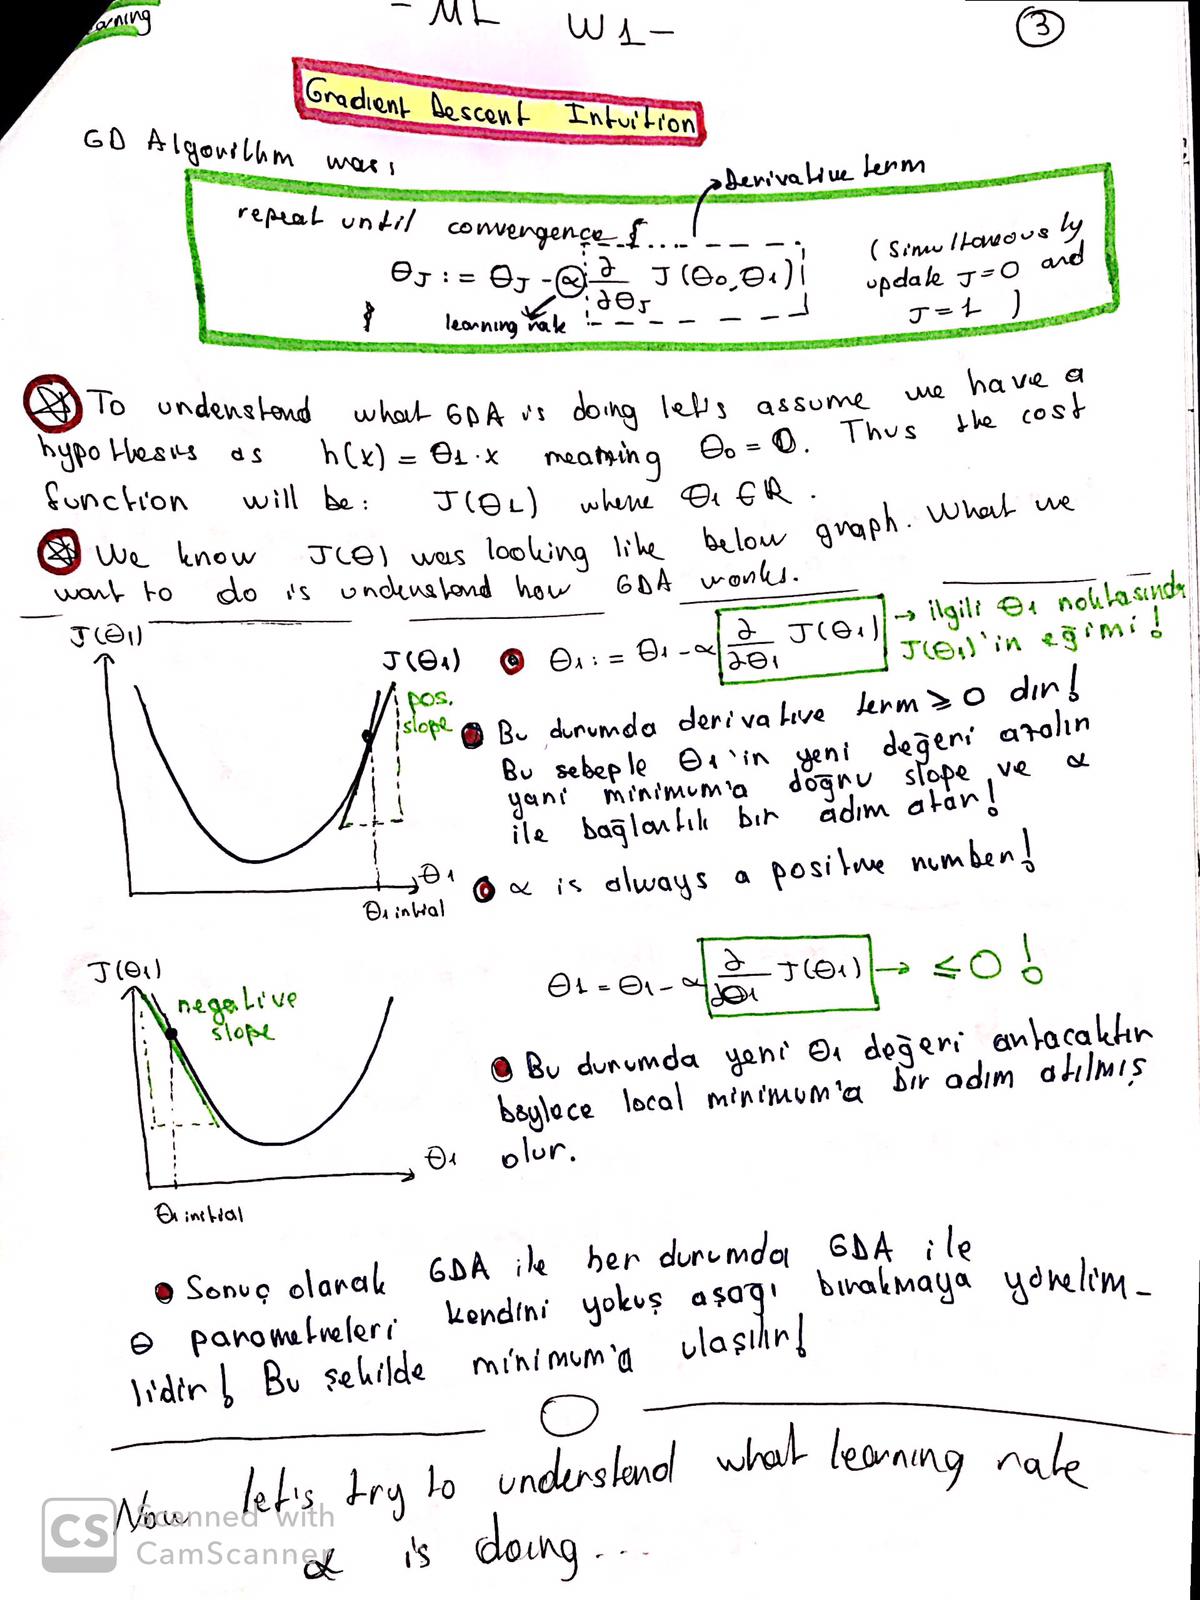 - ML W1-
3
Gradient Descent Intuition
GD Algorithm was:
Derivative term
repeat until convergence {
θJ := θJ - α ∂/∂θJ J(θ0, θ1)
(Simultaneously
update J=0 and
J=1 )
learning rate
}
To understand what GDA is doing let's assume we have a
hypothesis as h(x) = θ1.x meaning θ0 = 0. Thus the cost
function will be: J(θ1) where θ1 ∈ R.
We know J(θ) was looking like below graph. What we
want to do is understand how GDA works.
J(θ1)
J(θ1)
pos.
slope
θ1
θ1 initial
θ1 := θ1 - α ∂/∂θ1 J(θ1) → ilgili θ1 noktasında
J(θ1)'in eğimi!
Bu durumda derivative term ≥ 0 dır!
Bu sebeple θ1'in yeni değeri azalır
yani minimum'a doğru slope ve α
ile bağlantılı bir adım atar!
α is always a positive number!
J(θ1)
negative
slope
θ1
θ1 initial
θ1 = θ1 - α ∂/∂θ1 J(θ1) → ≤ 0 !
Bu durumda yeni θ1 değeri artacaktır
böylece local minimum'a bir adım atılmış
olur.
Sonuç olarak GDA ile her durumda GDA ile
θ parametreleri kendini yokuş aşağı bırakmaya yönelim-
lidir! Bu şekilde minimum'a ulaşılır!
Now let's try to understand what learning rate
α is doing...
CS Scanned with
CamScanner